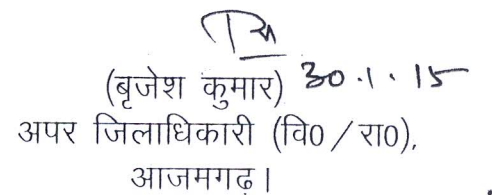 (बृजेश कुमार) 30.1.15
अपर जिलाधिकारी (वि0/रा0),
आजमगढ़।